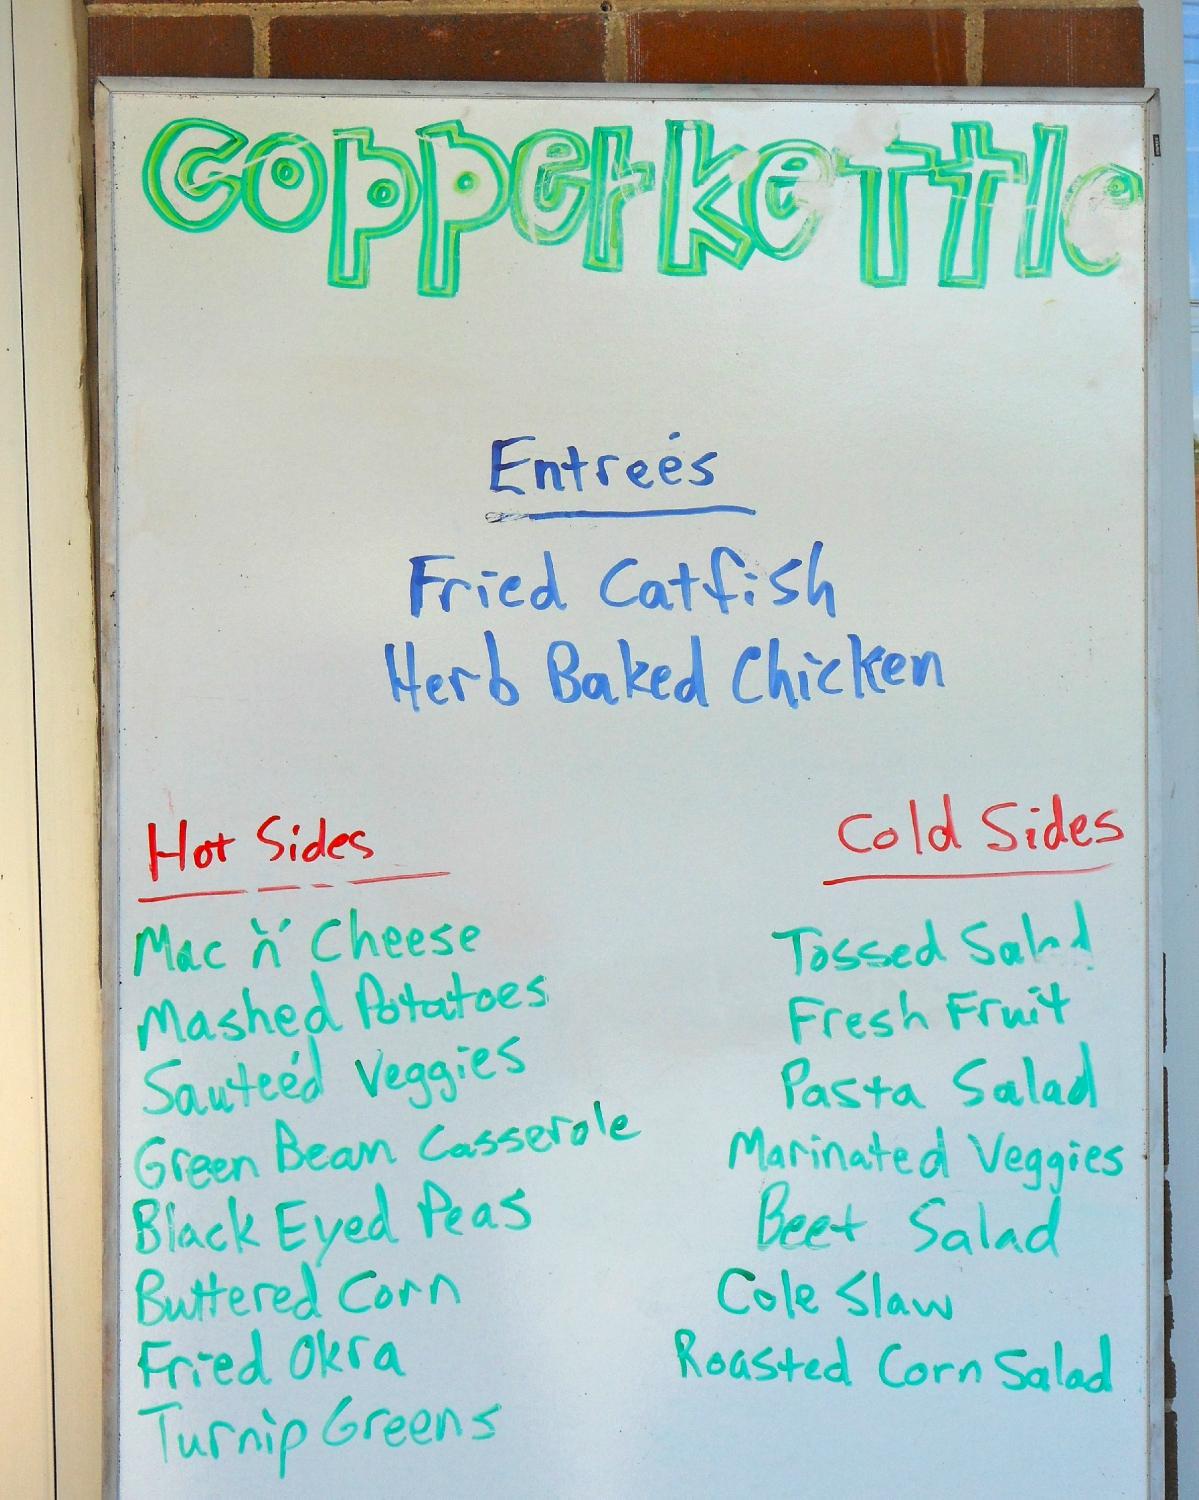 Copper kettle
Entreés
Fried Catfish
Herb Baked Chicken
Hot Sides
Mac 'n' Cheese
Mashed Potatoes
Sauteéd Veggies
Green Bean Casserole
Black Eyed Peas
Buttered Corn
Fried Okra
Turnip Greens
Cold Sides
Tossed Salad
Fresh Fruit
Pasta Salad
Marinated Veggies
Beet Salad
Cole Slaw
Roasted Corn Salad